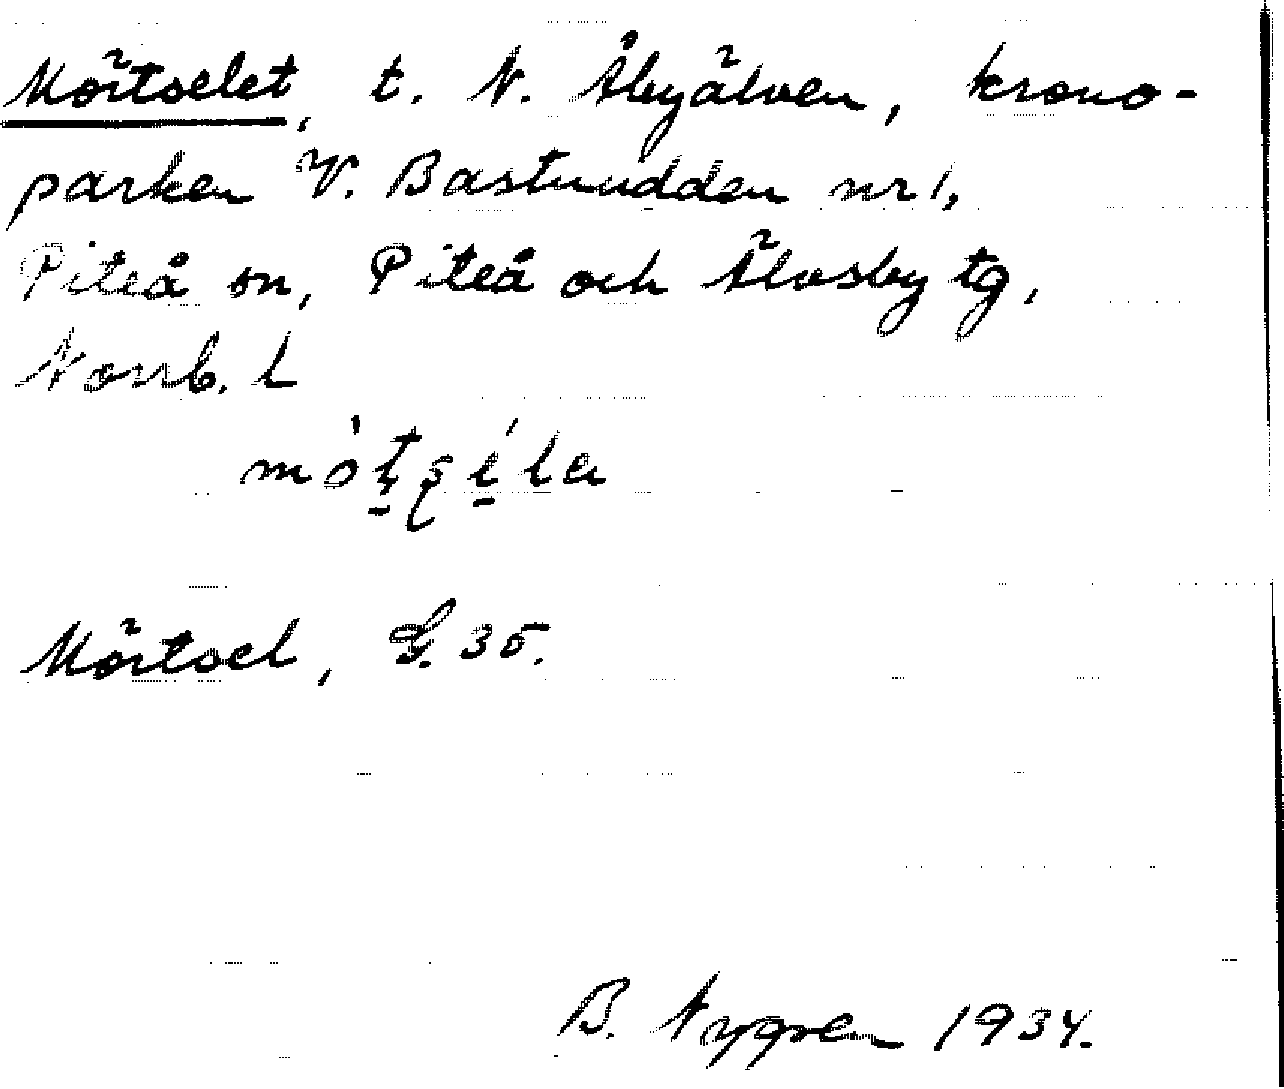 Mörtselet, t. N. Åbyälven, krono-
parken V. Bastuudden nr 1,
Piteå sn, Piteå och Älvsby tg,
Norrb. l
Mörtsel, G. 35.
B. Nygren 1934.